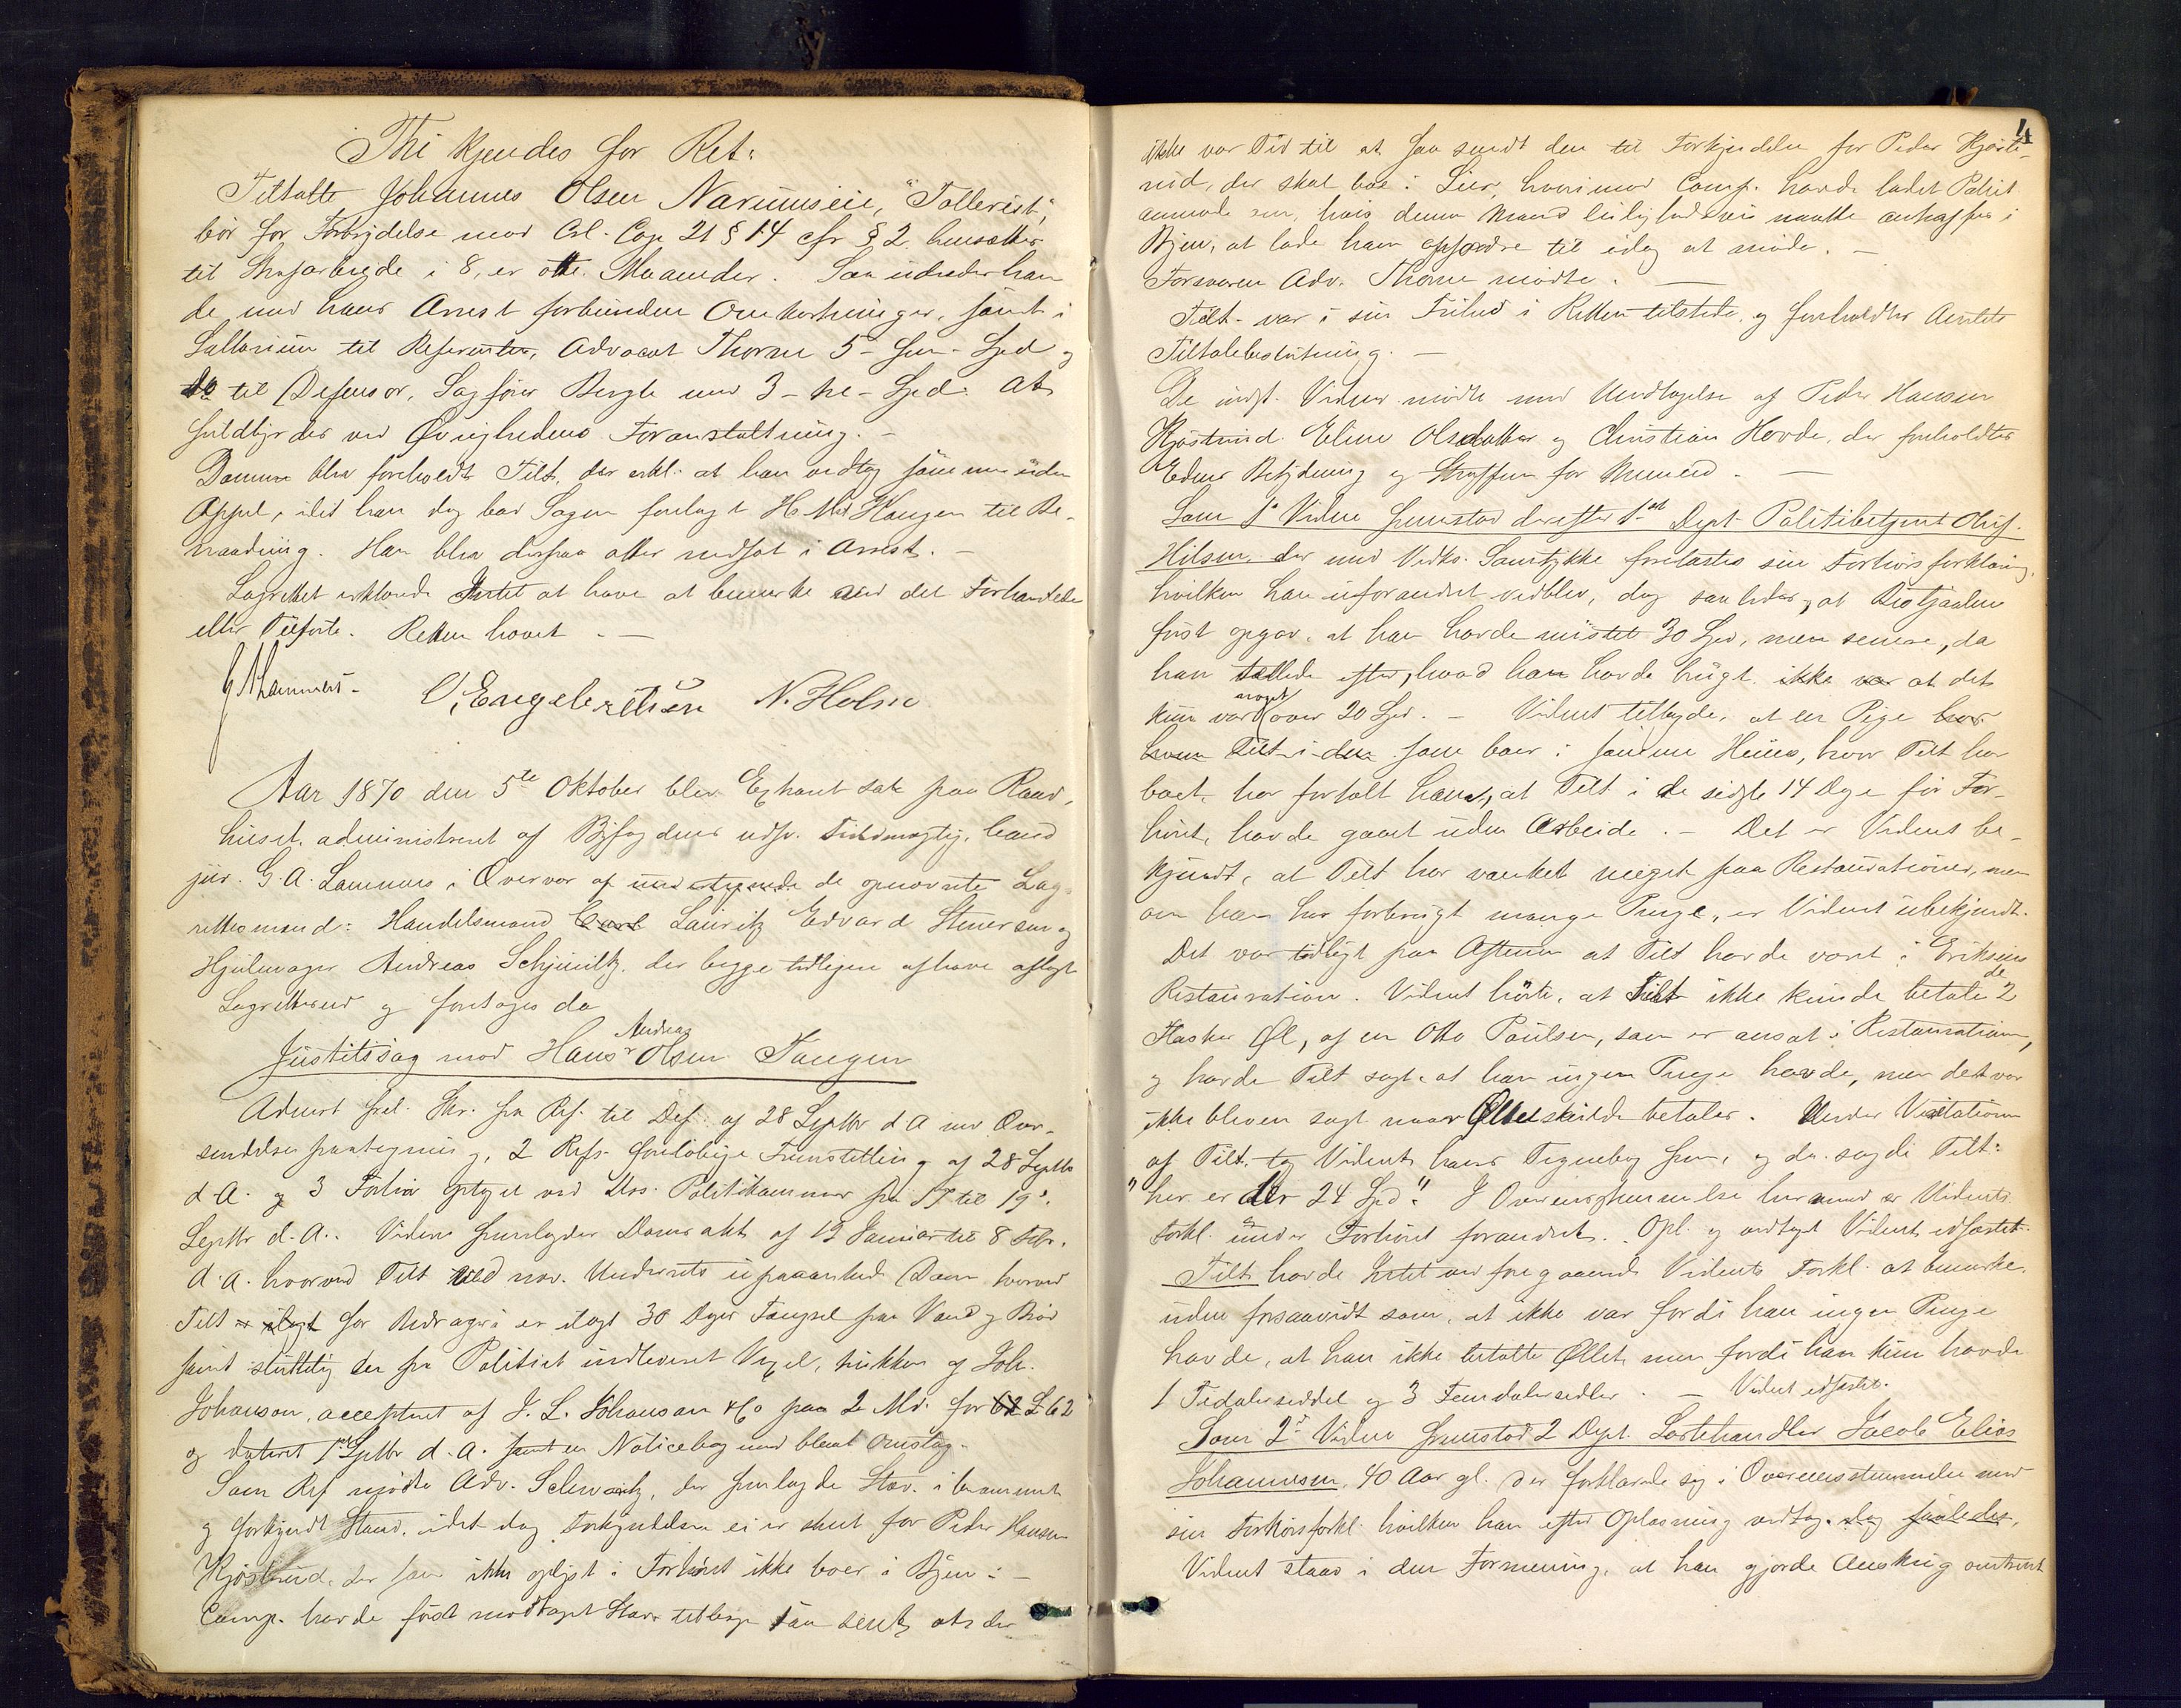 Thi kjendes for Ret:
Tiltalte Johannes Olsen Narumseie, "Tollerist",
bör for Forbrydelse mod Crl. Cap 21 § 14 cfr § 2 hensættes
til Strafarbeide i 8, er otte Maaneder. Saa udreder han
de med hans Arrest forbundne Omkostninger, samt i
Sallarium til Referenten, Advocat Thorne 5 - fem - Spd og
do til Defensor, Sagförer Bergh med 3 - tre - Spd. At
fuldbyrdes ved Øvrighedens Foranstaltning. -
Dommen blev foreholdt Tilt, der erkl. at han vedtog samme uden
Appel, idet han dog bad Sagen forelagt H. M. Kongen til Be-
naadning. Han blev derpaa atter indsat i Arrest. -
Lagrettet erklærede Intet at have at bemærke ved det Forhandlede
eller Tilförte. Retten hævet. -
G A Lammers. O, Engebretsen N. Holm
Aar 1870 den 5te Oktober blev Extraret sat paa Raad-
huset, administreret af Byfogdens udsv. Fuldmægtig, cand
jur. G. A. Lammers i Overvær af de opnævnte Lag-
rettesmænd: Handelsmand Carl Lauritz Edvard Stenersen og
Hjulmager Andreas Schjwiltz, der begge tidligere aflagt
Lagretteseed og foretoges da
Justitssag mod Hans Andreas Olsen Tangen
Actor frel. Skr. fra Ref. til Def. af 28 Septbr d A med Over-
sendelsespaategning, 2 Refs. foreløbige Fremstilling af 28 Septbr
d. A. og 3 Forhör optaget ved Drs. Politikammer fra 17 til 19de
Septbr d. A.. Videre fremlagdes Domsakt af 19 Januar til 8 Febr.
d. A. hvorved Tilt ved nærv. Underrets upaaankede Dom hvorved
Tilt for Bedrageri er ilagt 30 Dages Fængsel paa Vand og Bröd
samt sluttelig den fra Politiet indleveret Vexel, trukken af Joh.
Johanson, accepteret af J. L. Johanson & Co paa 2 Md. for £ 62
og dateret 1ste Septbr d. A. samt en Noticebog med blaat Omslag.
Som Ref mødte Adv. Schwartz, der fremlagde Stævn. i berammet
og forkyndt Stand, idet dog Forkyndelsen ei er skeet for Peder Hansen
Kjöstrud, der som ikke oplyst i Forhöret ikke boer i Byen: -
Comp. havde först modtaget Stævn tilbage saa sent, at der
ikke var Tid til at faa sendt den til Forkyndelse for Peder Kjöst-
rud, der skal boe i Lier, hvorimod Comp. havde ladet Politiet
anmode om, hvis denne Mand leilighedsvis maatte antræffes i
Byen, at lade ham opfordre til idag at möde. -
Forsvaren Adv. Thorne mødte. -
Tilt. var i sin Frihed i Retten tilstede og foreholdtes Amtets
Tiltalebeslutning. -
De indst. Vidner mödte med Undtagelse af Peder Hansen
Kjöstrud. Eline Olsdatter og Christian Hovde, der foreholdtes
Edens Betydning og Straffen for Meneed. -
Som 1ste Vidne fremstod derefter 1ste Dept. Politibetjent Oluf
Hilsen, der med Vedks. Samtykke forelæstes sin Forhörsforklaring,
hvilken han uforandret vedblev, dog saaledes, at Bestjaalne
först opgav, at han havde mistet 30 Spd, men senere, da
han tællede efter, hvad han havde brugt, at det
kun var noget over 20 Spd. - Vidnet tilføiede, at en Pige
Tilt som boer i samme Huus, hvor Tilt har
boet, har fortalt ham, at Tilt i de sidste 14 Dage för For-
höret, havde gaaet uden Arbeide. - Det er Vidnet be-
kjendt, at Tilt har vanket meget paa Restaurationer, men
om han har forbrugt mange Penge, er Vidnet ubekjendt.
Det var tidligt paa Aftenen at Tilt havde været i Eriksens
Restauration. Vidnet hörte, at Tilt ikke kunde betale de 2
Flasker Øl, af en Otto Poulsen, som er ansat i Restaurationen,
og havde Tilt sagt at han ingen Penge havde, men det var
ikke bleven sagt naar Øllet skulde betales. Under Visitationen
af Tilt, tog Vidnet hans Tegnebog frem, og da sagde Tilt:
"her er der 24 Spd". I Overensstemmelse hermed er Vidnets
Forkl. under Forhöret forandret. Opl. og vedtaget Vidnet edfæstet.
Tilt havde Intet ved foregaaende Vidnets Forkl. at bemærke,
uden forsaavidt som, at ikke var fordi han ingen Penge
havde, at han ikke betalte Øllet, men fordi han kun havde
1 Tidalerseddel og 3 Femdalersedler. - Vidnet edfæstet.
Som 2det Vidne fremstod 2 Dept. Lostehandler Jacob Elias
Johannesen, 40 Aar gl. der forklarede sig i Overensstemmelse med
sin Forhörsforkl. hvilken han efter Oplæsning vedtog. dog saaledes,
Vidnet staar i den Formening, at han gjorde Anskrig omtrent